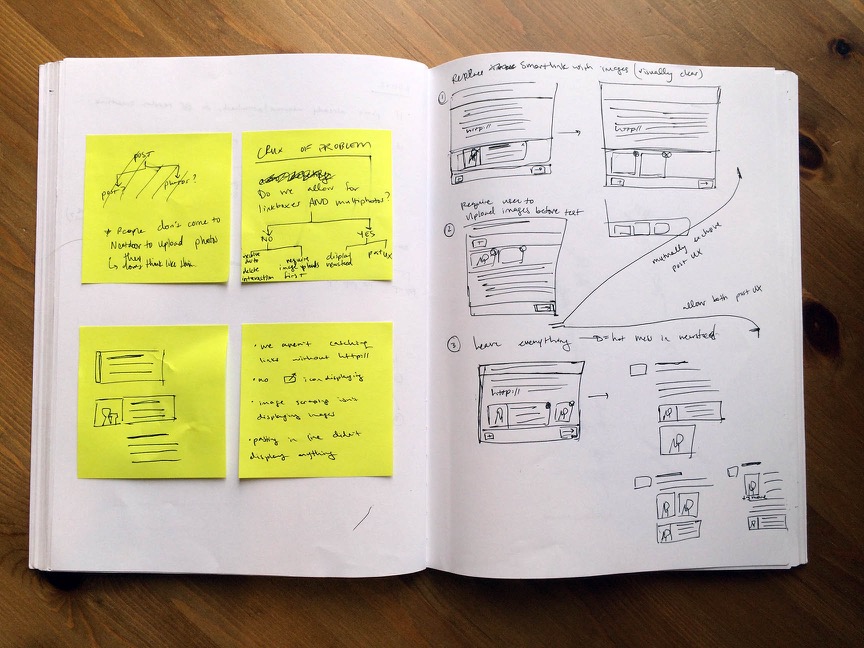 post
post?
photos?
* People don't come to
Nextdoor to upload photos
↳ they
don't think like this.
CRUX OF PROBLEM
Do we allow for
linkboxes AND multiphotos?
NO
YES
delete
interaction
require
image uploads
first
display
newsfeed
post UX
• we aren't catching
links without http://
• no icon displaying
• image scraping isn't
displaying images
• pasting in live didn't
display anything
Replace Smartlink with images (visually clear)
①
http://
→
http://
Require user to
upload images before text
②
mutually exclusive
post UX
allow both post UX
③ Leave everything → D= hot mess in newsfeed
http://
→